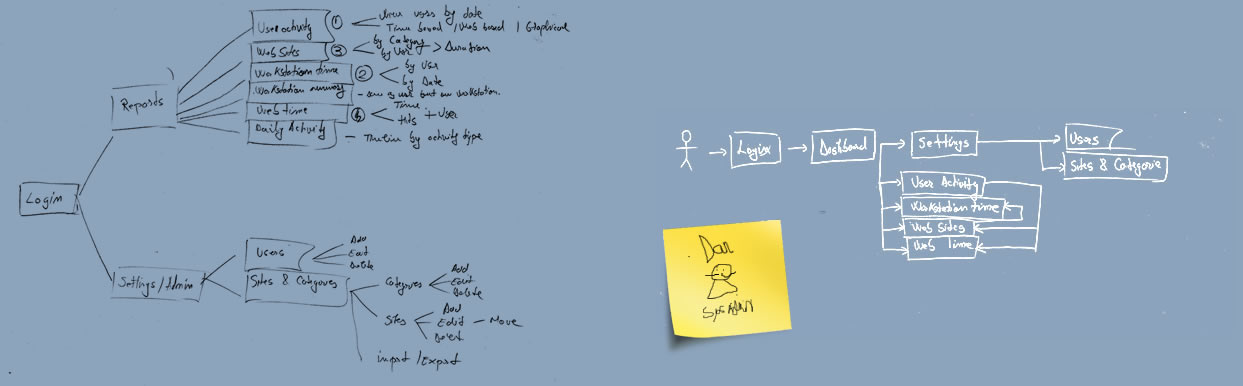 User activity
1
View users by date
Time based / Web based / Graphical
Web Sites
3
by Category
by User
> Duration
Workstation time
2
by User
by Date
Workstation
- but on workstation.
Web time
Time
Hits
+ User
Daily Activity
- Timeline by activity type
Reports
Login
Settings / Admin
Users
Add
Edit
Delete
Sites & Categories
Categories
Add
Edit
Delete
Sites
Add
Edit - Move
import / Export
Login
Dashboard
Settings
Users
Sites & Categorie
User Activity
Workstation time
Web Sites
Web Time
Dan